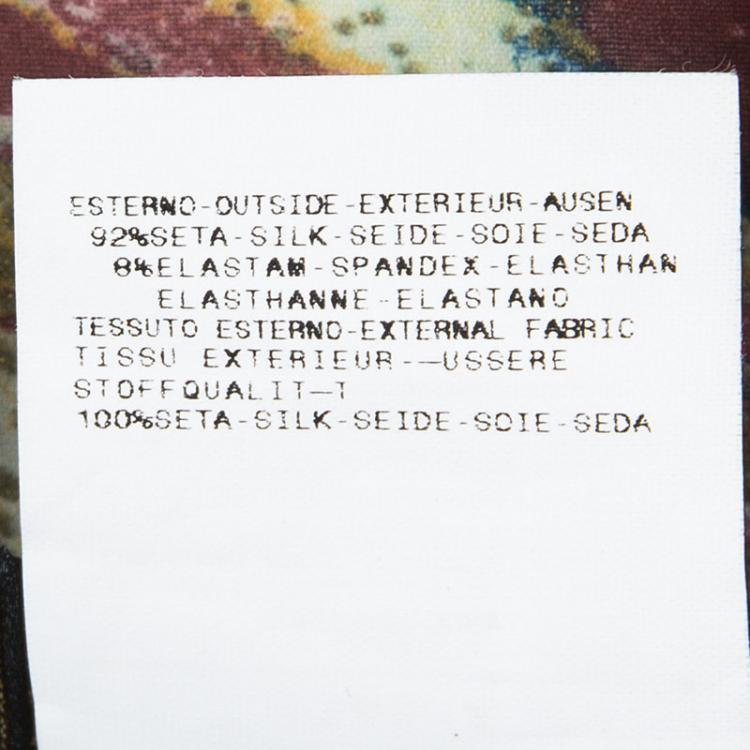 ESTERNO-OUTSIDE-EXTERIEUR-AUSEN
92%SETA-SILK-SEIDE-SOIE-SEDA
8%ELASTAM-SPANDEX-ELASTHAN
ELASTHANNE-ELASTANO
TESSUTO ESTERNO-EXTERNAL FABRIC
TISSU EXTERIEUR-—USSERE
STOFFQUALIT—T
100%SETA-SILK-SEIDE-SOIE-SEDA